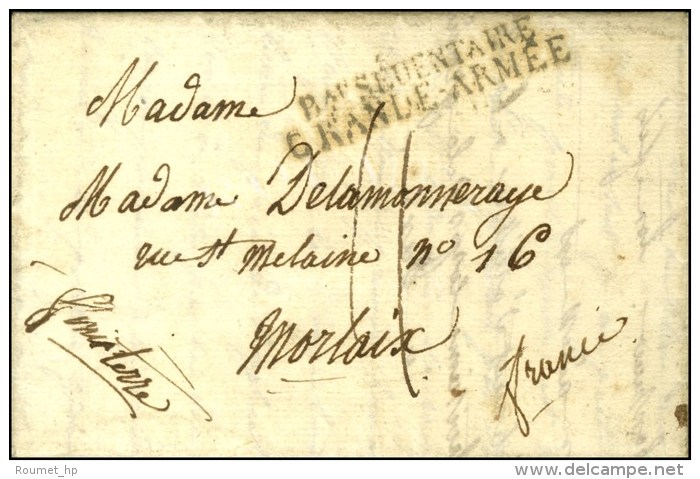 BAU SÉDENTAIRE
GRANDE-ARMÉE
Madame
Madame Delamonneraye
rue St melaine no 16
Morlaix
finisterre
france
Roumet_hp
www.delcampe.net